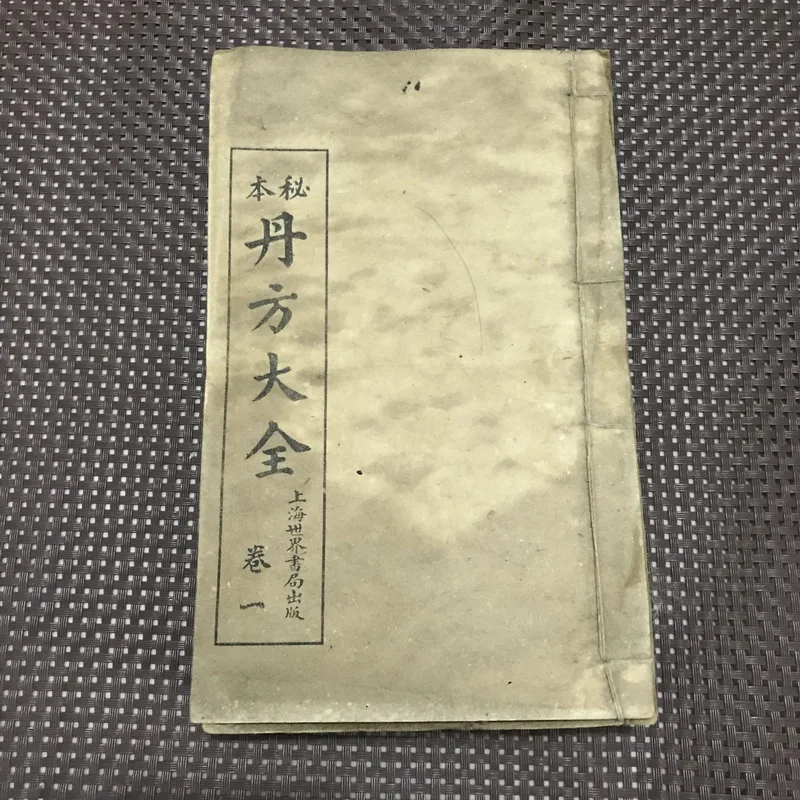 秘本
丹方大全
卷一
上海世界書局出版